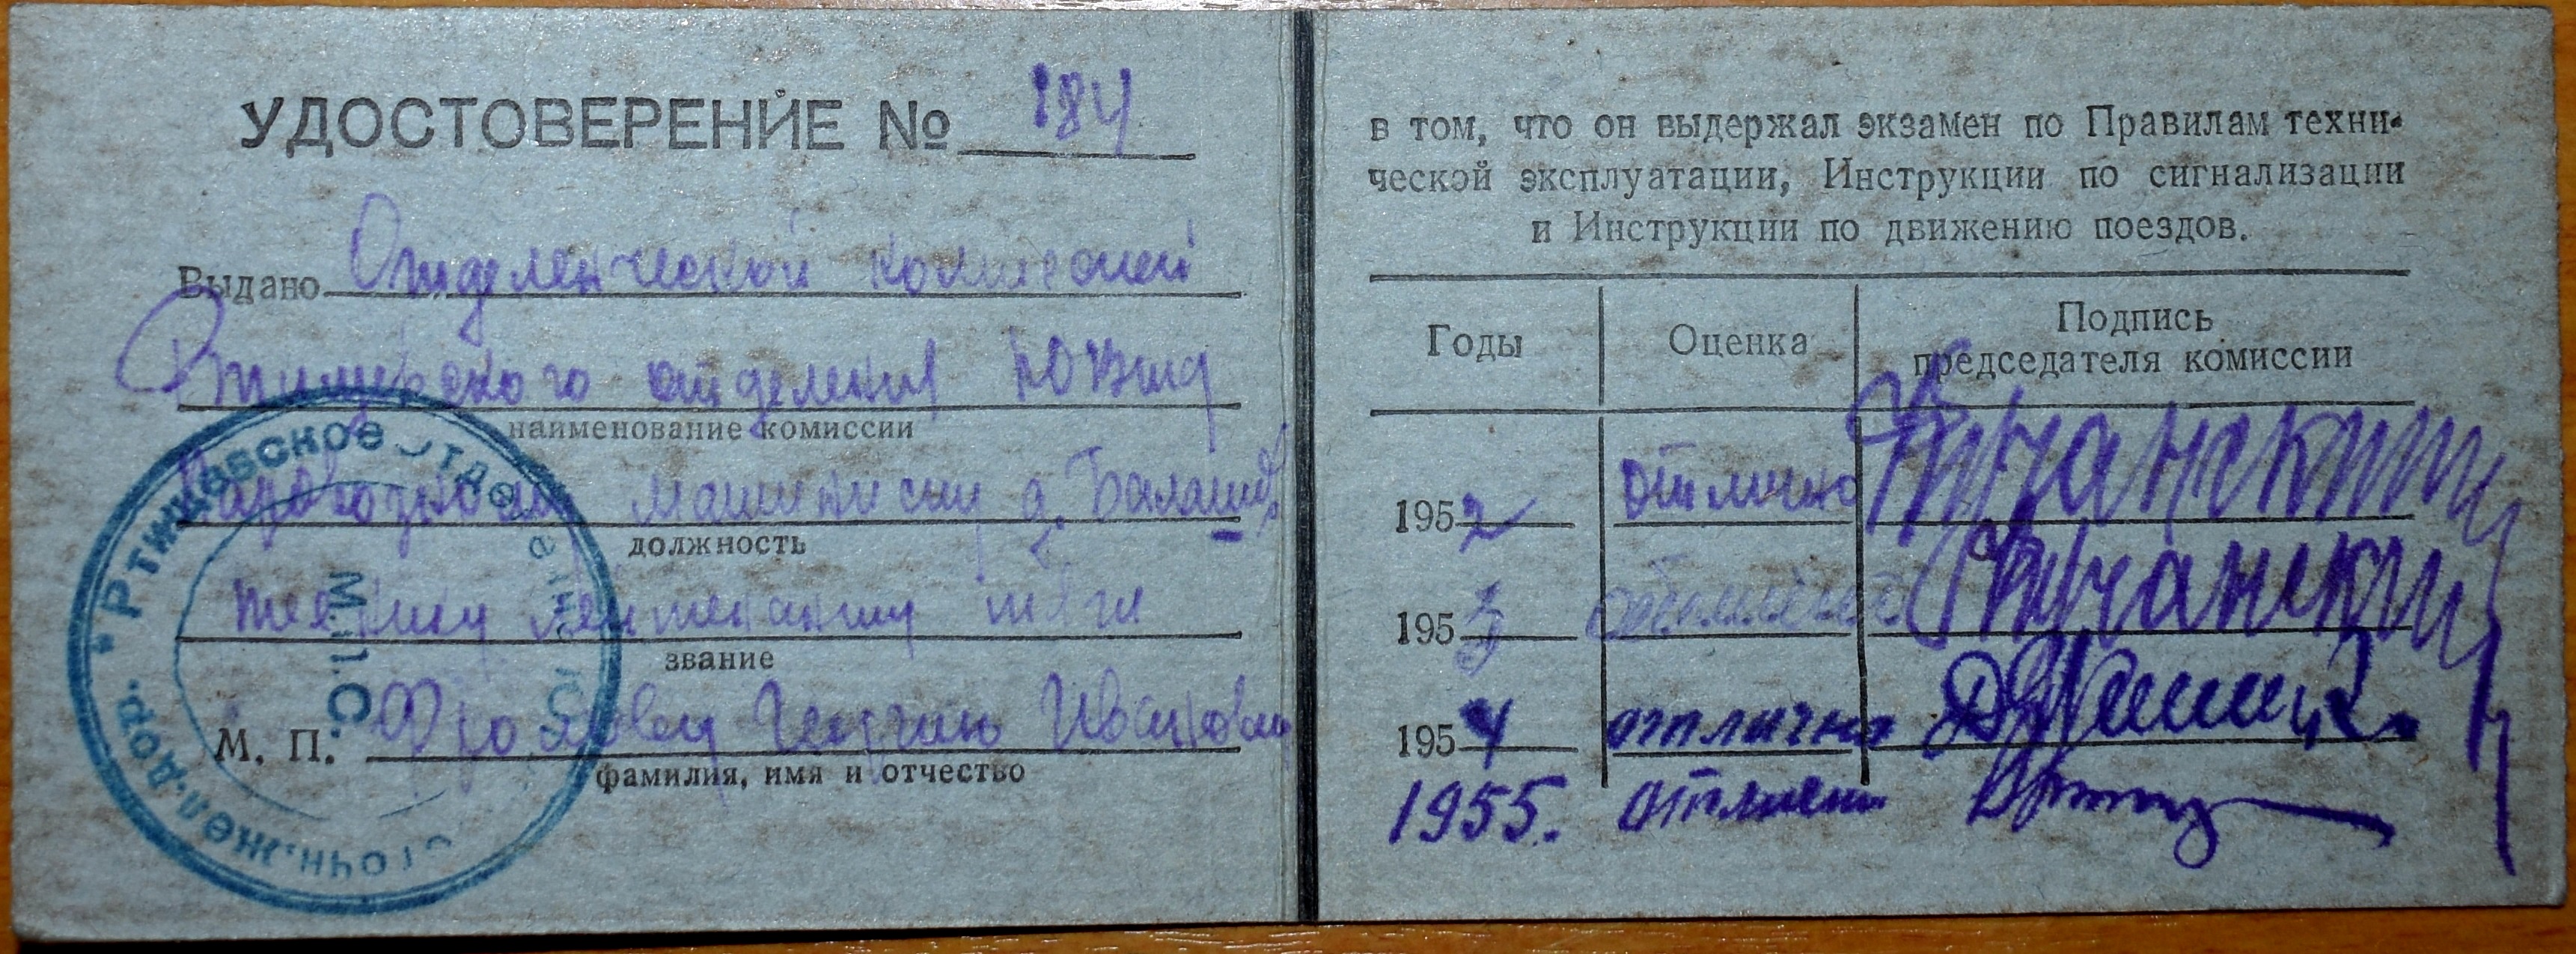 УДОСТОВЕРЕНИЕ № 184
Выдано Отделенческой комиссией
Ртищевского отделения ЮВжд
наименование комиссии
Паровозному машинисту д. Балашов
должность
технику лейтенанту тяги
звание
М. П. Фролову Георгию Ивановичу
фамилия, имя и отчество
Ртищевское отделение Ю
точн.жел.дор.
М.П.С.
в том, что он выдержал экзамен по Правилам техни-
ческой эксплуатации, Инструкции по сигнализации
и Инструкции по движению поездов.
Годы Оценка Подпись
председателя комиссии
1952 отлично
1953 отлично
1954 отлично
1955. отлично